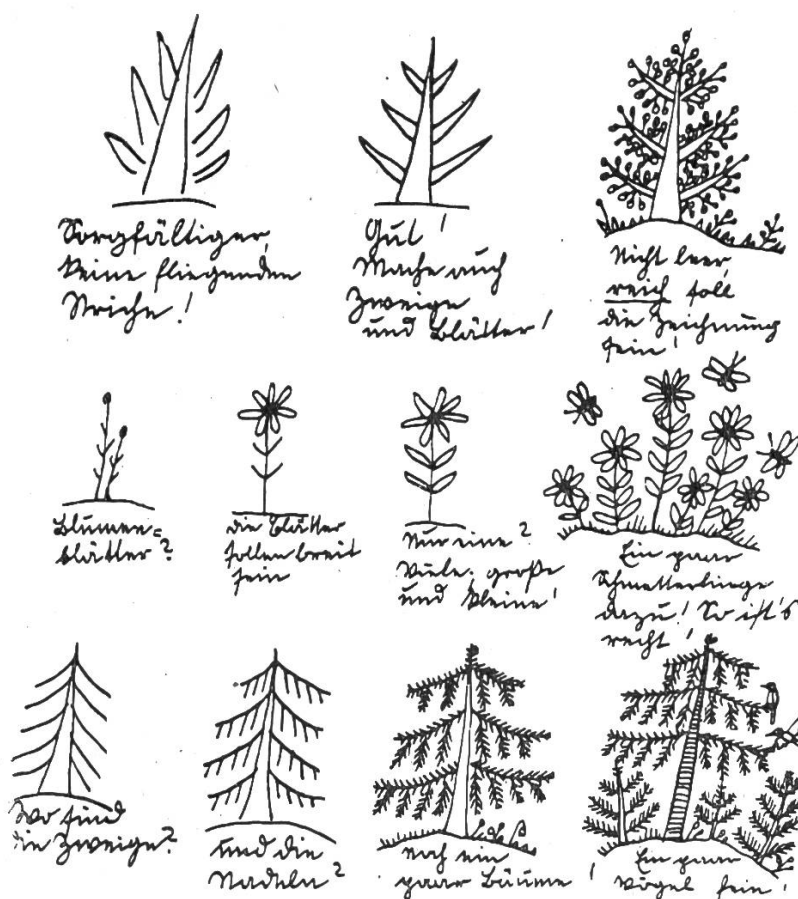 Sorgfältiger,
keine fliegenden
Striche!
Gut!
Mache auch
Zweige
und Blätter!
Nicht leer,
reich soll
die Zeichnung
sein!
Blumen=
blätter?
die Blätter
sollen breit
sein
Nur eine?
Viele, große
und kleine!
Ein paar
Schmetterlinge
dazu! So ist's
recht!
Wo sind
die Zweige?
Und die
Nadeln?
Noch ein
paar Bäume!
Ein paar
Vögel fein!